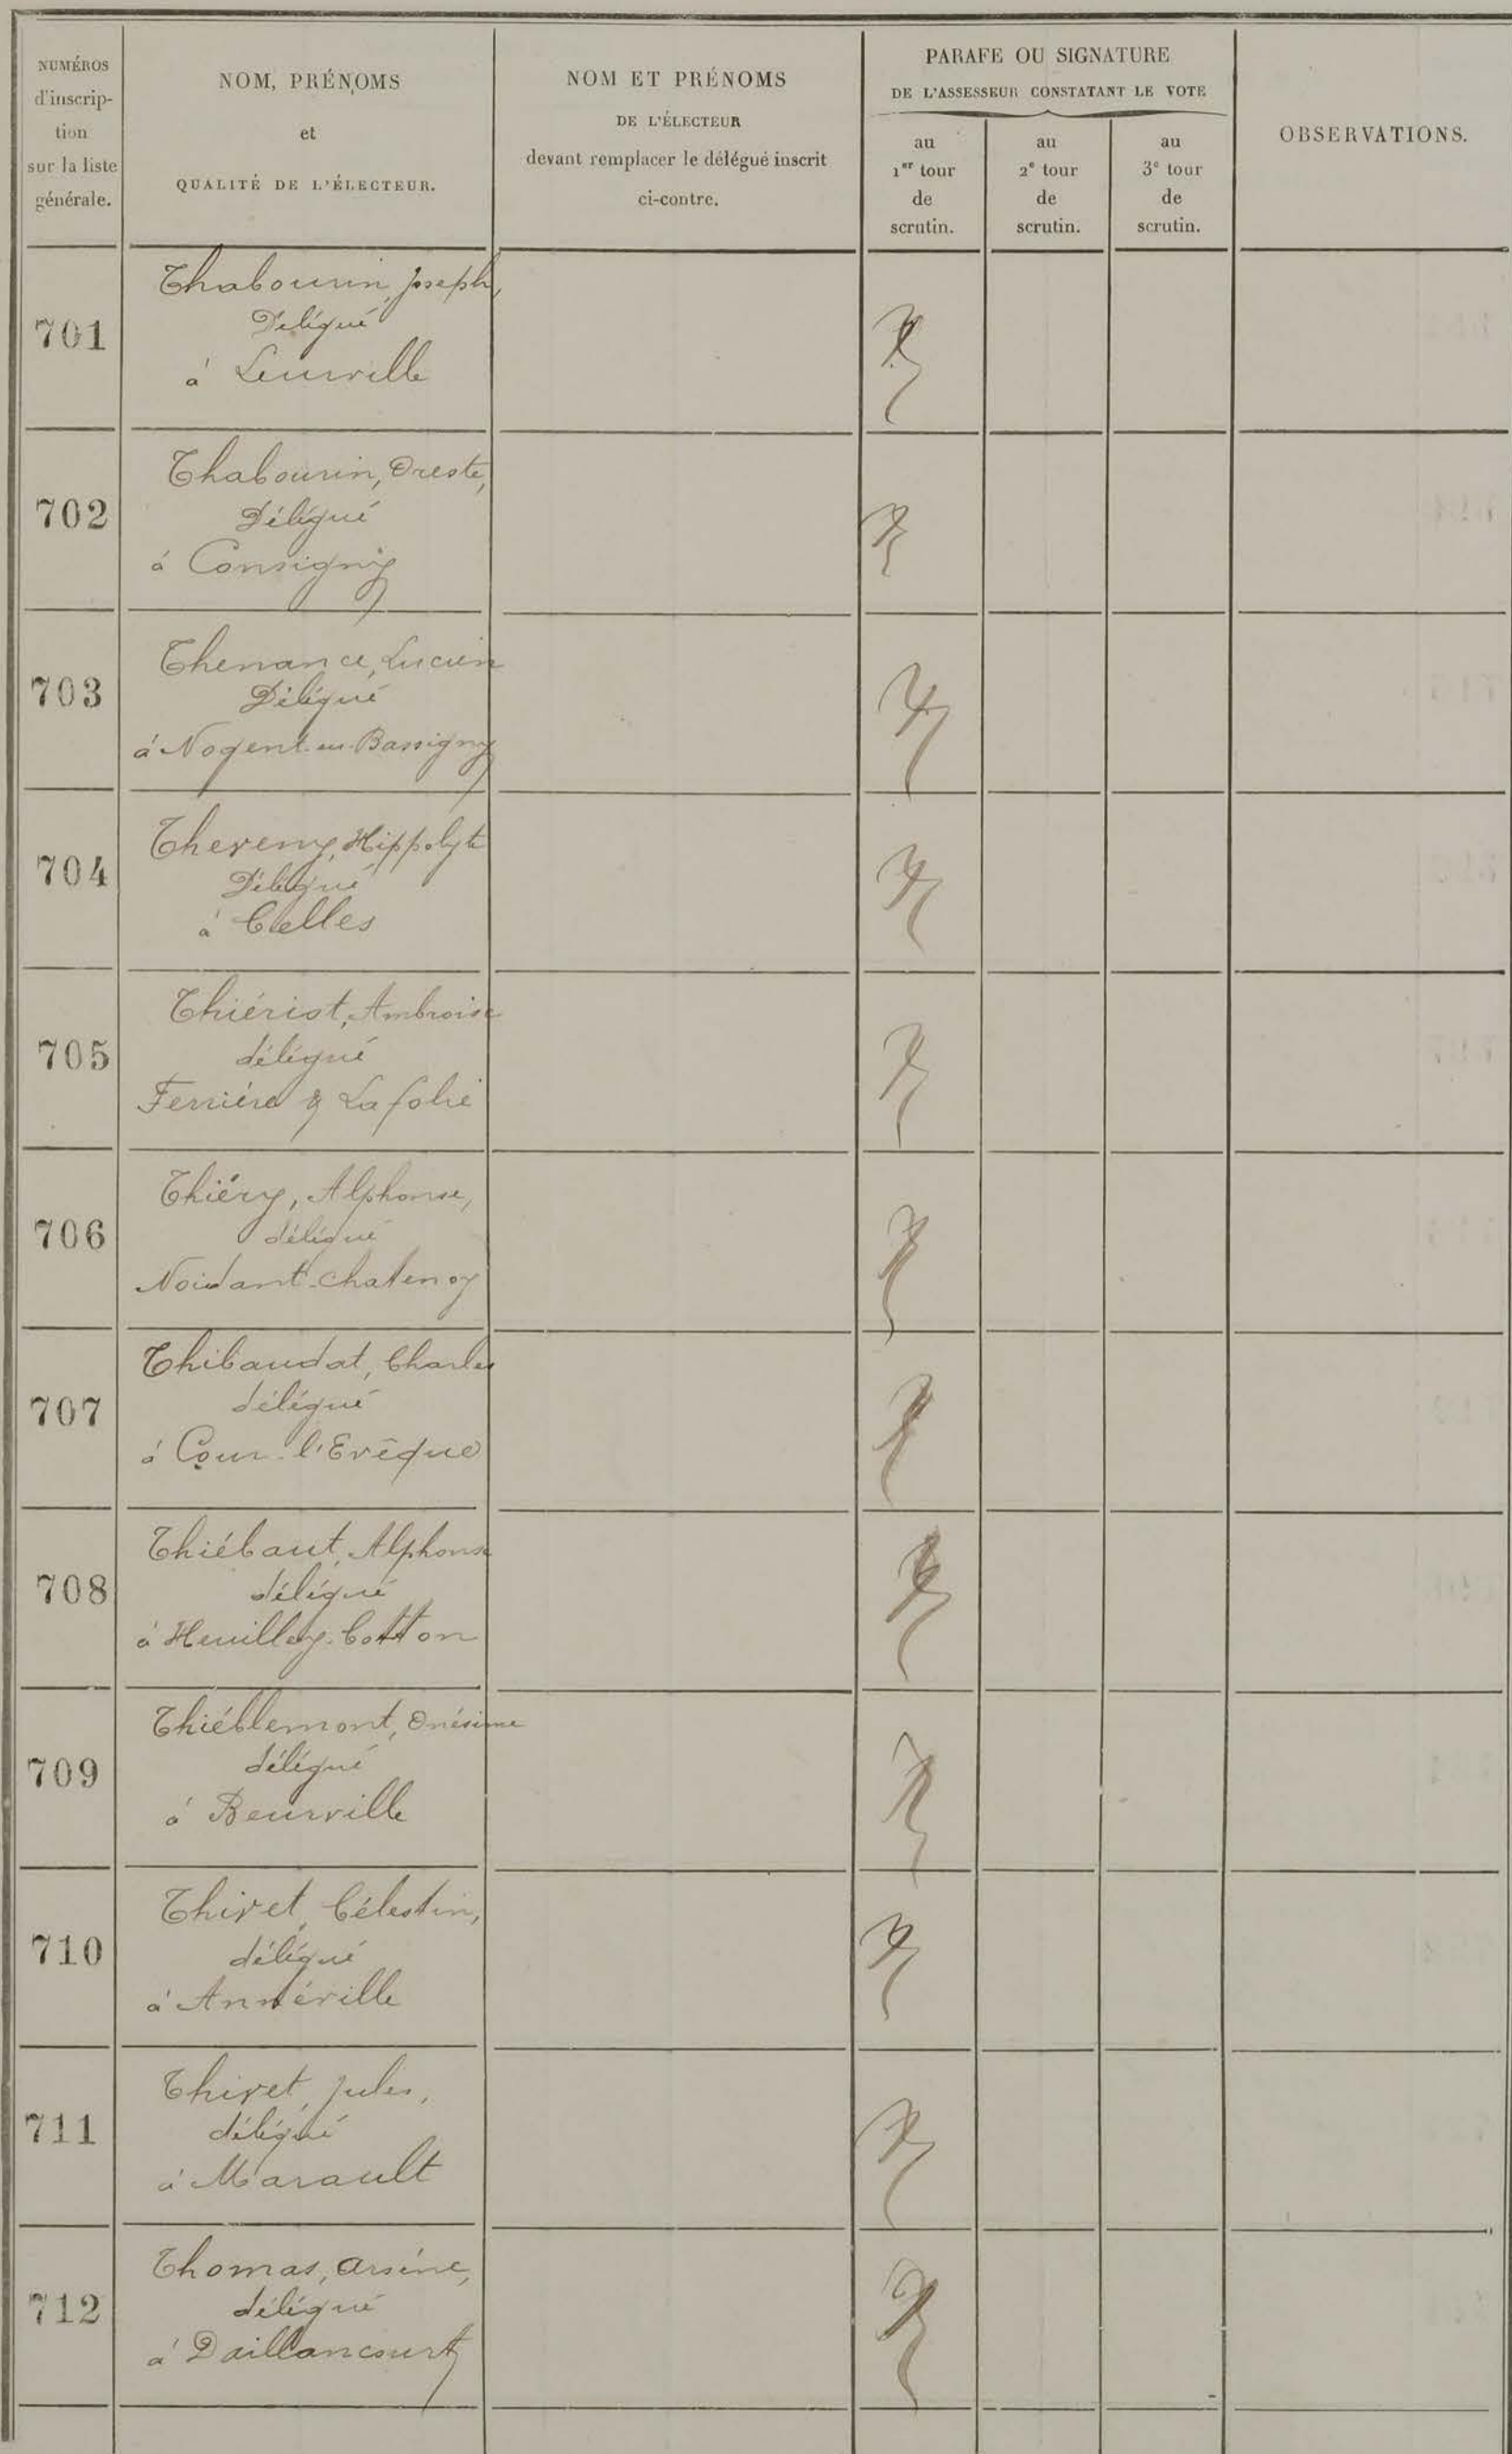 NUMÉROS
d'inscrip-
tion
sur la liste
générale.
NOM, PRÉNOMS
et
QUALITÉ DE L'ÉLECTEUR.
NOM ET PRÉNOMS
DE L'ÉLECTEUR
devant remplacer le délégué inscrit
ci-contre.
PARAFE OU SIGNATURE
DE L'ASSESSEUR CONSTATANT LE VOTE
au
1er tour
de
scrutin.
au
2e tour
de
scrutin.
au
3e tour
de
scrutin.
OBSERVATIONS.
701
Thabourin, Joseph,
Délégué
à Leurville
702
Thabourin, Oreste,
Délégué
à Consigny
703
Thenance, Lucien
Délégué
à Nogent-en-Bassigny
704
Theveny, Hippolyte
Délégué
à Celles
705
Thiériot, Ambroise
délégué
Ferrière & Lafolie
706
Thiéry, Alphonse,
délégué
Noidant-Chatenoy
707
Thibaudat, Charles
délégué
à Cour-l'Evêque
708
Thiébaut, Alphonse
délégué
à Heuilley-Cotton
709
Thiéblemont, Onésime
délégué
à Beurville
710
Thivet, Célestin,
délégué
à Annéville
711
Thivet, Jules,
délégué
à Marault
712
Thomas, Arsène,
délégué
à Daillancourt